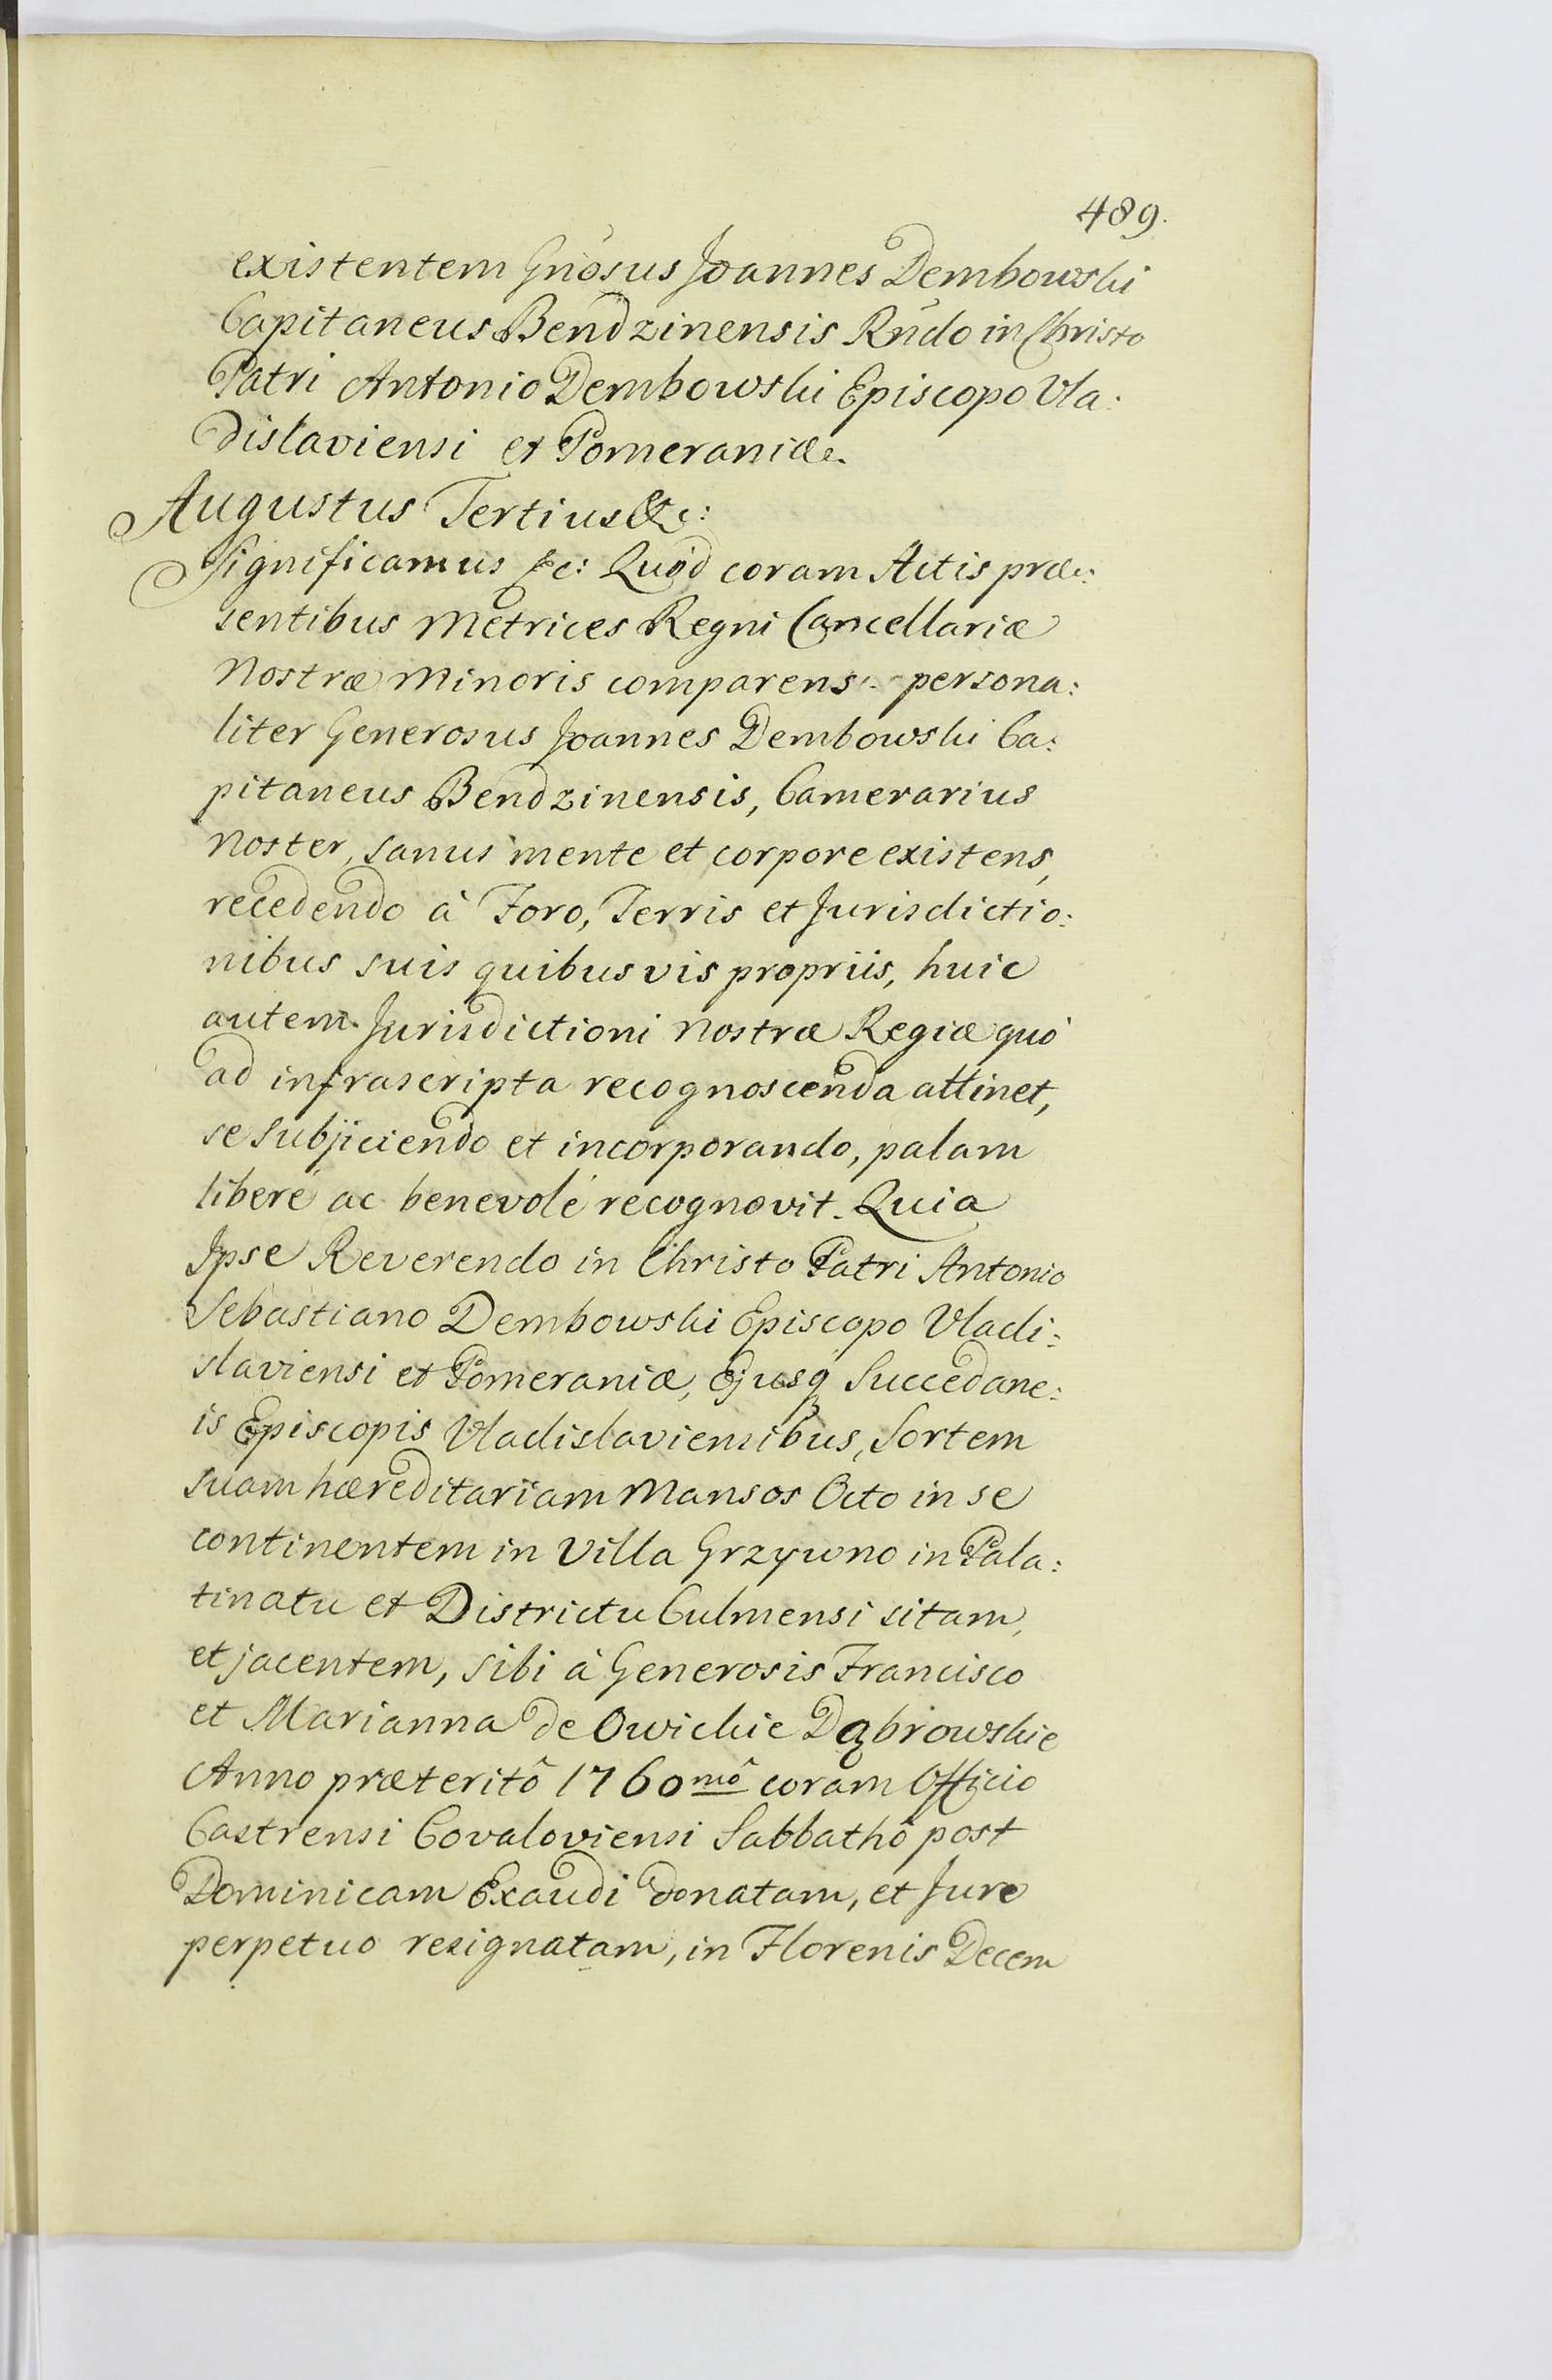 489.
existentem Gnosus Joannes Dembowski
Capitaneus Bendzinensis Rndo in Christo
Patri Antonio Dembowski Episcopo Vla:
dislaviensi et Pomeraniæ.
Augustus Tertius &c:
Significamus &c: Quod coram Actis præ:
sentibus Metrices Regni Cancellariæ
Nostræ Minoris comparens persona:
liter Generosus Joannes Dembowski Ca:
pitaneus Bendzinensis, Camerarius
Noster, sanus mente et corpore existens,
recedendo à Foro, Terris et Jurisdictio:
nibus suis quibusvis propriis, huic
autem Jurisdictioni Nostræ Regiæ quò
ad infrascripta recognoscenda attinet,
se subjiciendo et incorporando, palam
liberè ac benevolè recognovit. Quia
Ipse Reverendo in Christo Patri Antonio
Sebastiano Dembowski Episcopo Vladi:
slaviensi et Pomeraniæ, Ejusq Succedane:
is Episcopis Vladislaviensibus, Sortem
suam hæreditariam Mansos Octo in se
continentem in Villa Grzywno in Pala:
tinatu et Districtu Culmensi sitam,
et jacentem, sibi à Generosis Francisco
et Marianna de Owickie Dąbrowskie
Anno præteritô 1760mô coram Officio
Castrensi Covaloviensi Sabbathô post
Dominicam Exaudi donatam, et Jure
perpetuo resignatam, in Florenis Decem